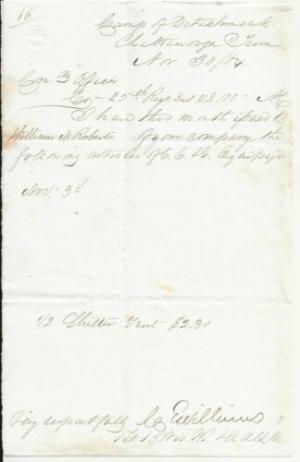 16
Camp of Detachments
Chattanooga Tenn
Nov. 30/64
Com'g Officer
Co — 25th Regt
I have this month issued to
William H. Roberts of your company the
following articles of C. C. & G. Equipage
Nov. 3d
1/2 Shelter Tent $2.30
Very respectfully
Williams